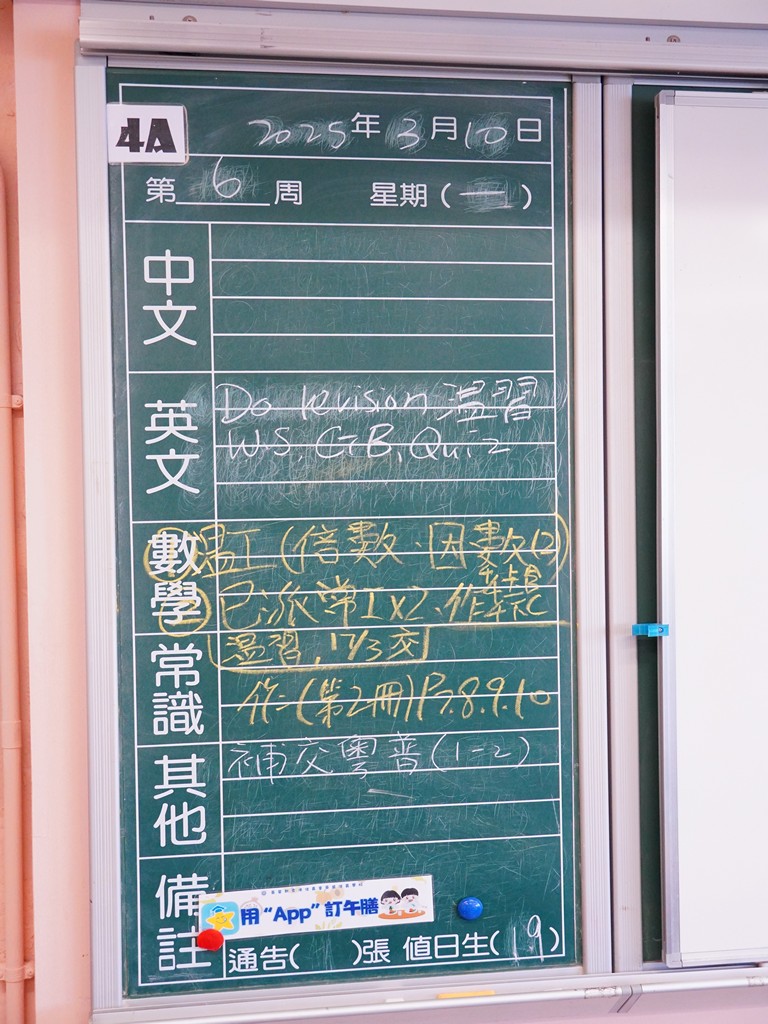 4A
2025年3月10日
第6周 星期(一)
中文
英文
Do revision 温習
W.S, GB, Quiz
數學
①温工(倍數、因數(2))
②已派常工x2、作
温習, 17/3交
常識
作二(第2冊)P7.8.9.10
其他
補交粵普(1-2)
備註
用“App”訂午膳
通告( )張 值日生(19)